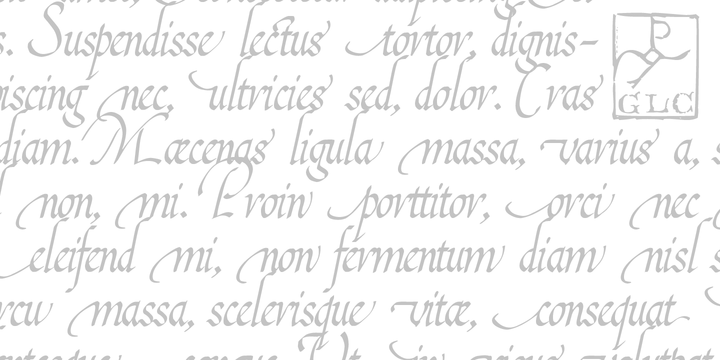 s. Suspendisse lectus tortor, dignis-
piscing nec, ultricies sed, dolor. Cras
GLC
diam. Mæcenas ligula massa, varius a, s
non, mi. Proin porttitor, orci nec
eleifend mi, non fermentum diam nisl s
rcu massa, scelerisque vitæ, consequat